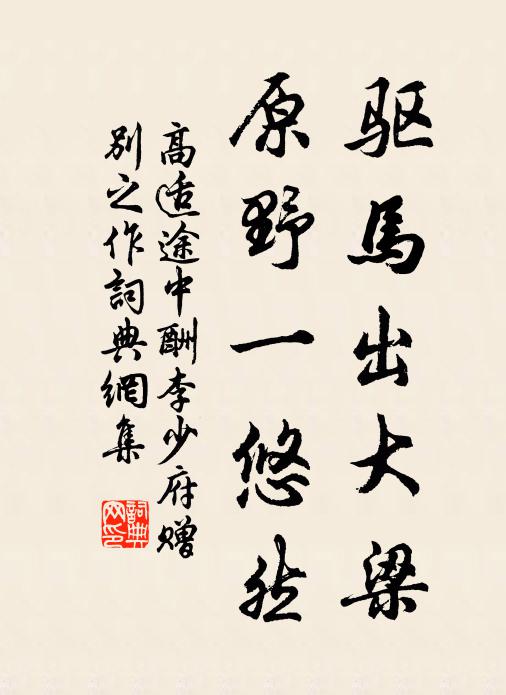 驱馬出大梁
原野一悠然
高适途中酬李少府赠
别之作詞典網集
詞典网印